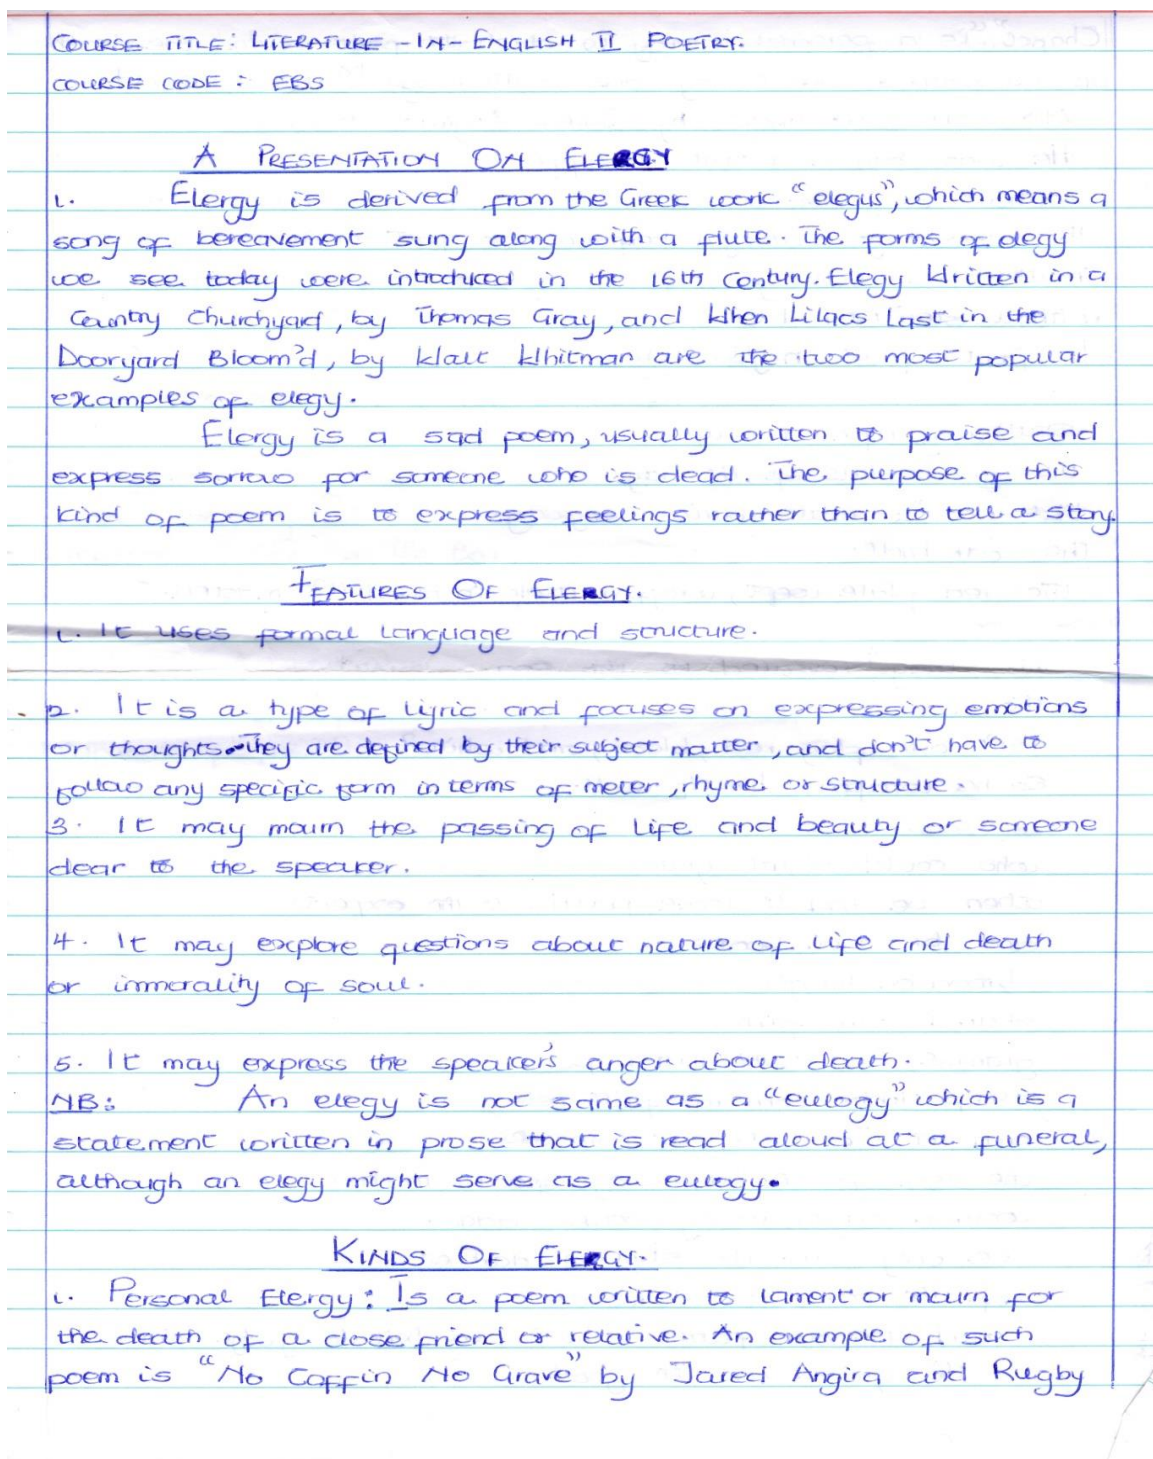 COURSE TITLE: LITERATURE-IN-ENGLISH II POETRY.
COURSE CODE: EBS
A PRESENTATION ON ELERGY
1. Elergy is derived from the Greek work "elegus", which means a
song of bereavement sung along with a flute. The forms of elegy
we see today were introduced in the 16th Century. Elegy Written in a
Country Churchyard, by Thomas Gray, and When Lilacs Last in the
Dooryard Bloom'd, by Walt Whitman are the two most popular
examples of elegy.
Elergy is a sad poem, usually written to praise and
express sorrow for someone who is dead. The purpose of this
kind of poem is to express feelings rather than to tell a story.
FEATURES OF ELERGY.
1. It uses formal language and structure.
2. It is a type of lyric and focuses on expressing emotions
or thoughts. They are defined by their subject matter, and don't have to
follow any specific form in terms of meter, rhyme or structure.
3. It may mourn the passing of life and beauty or someone
dear to the speaker.
4. It may explore questions about nature of life and death
or immorality of soul.
5. It may express the speaker's anger about death.
NB: An elegy is not same as a "eulogy" which is a
statement written in prose that is read aloud at a funeral,
although an elegy might serve as a eulogy.
KINDS OF ELERGY.
1. Personal Elergy: Is a poem written to lament or mourn for
the death of a close friend or relative. An example of such
poem is "No Coffin No Grave" by Jared Angira and Rugby